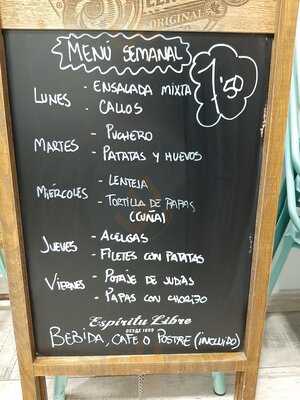 ORIGINAL
MENÚ SEMANAL
7'50
LUNES
- ENSALADA MIXTA
- CALLOS
MARTES
- PUCHERO
- PATATAS Y HUEVOS
MIÉRCOLES
- LENTEJA
- TORTILLA DE PAPAS
(CUÑA)
JUEVES
- ACELGAS
- FILETES CON PATATAS
VIERNES
- POTAJE DE JUDÍAS
- PAPAS CON CHORIZO
Espíritu Libre
DESDE 1889
BEBIDA, CAFE O POSTRE (INCLUIDO)